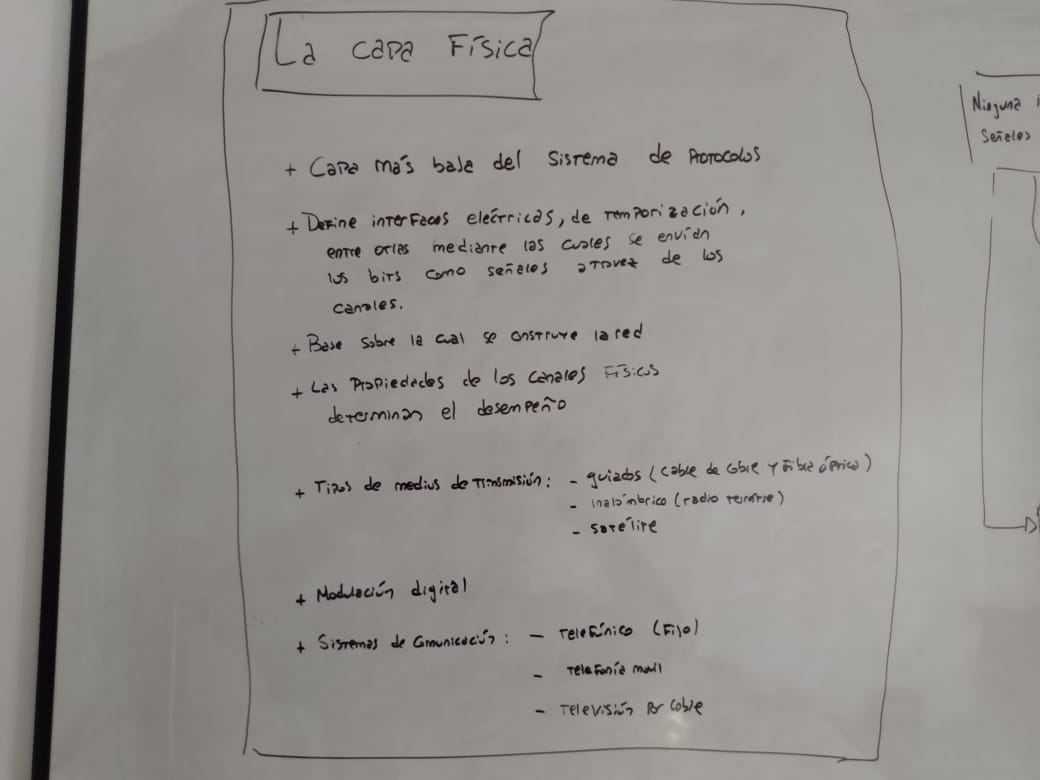 La capa Física
+ Capa más baja del sistema de Protocolos
+ Define interfaces eléctricas, de temporización,
entre otras mediante las cuales se envían
los bits como señales atravez de los
canales.
+ Base sobre la cual se construye la red
+ Las Propiedades de los canales Físicos
determinan el desempeño
+ Tipos de medios de Transmisión: - guiados (cable de cobre y Fibra óptica)
- inalámbrico (radio terrestre)
- satélite
+ Modulación digital
+ Sistemas de comunicación: - Telefónico (Fijo)
- Telefonía movil
- Televisión Por cable
Ninguna
Señales